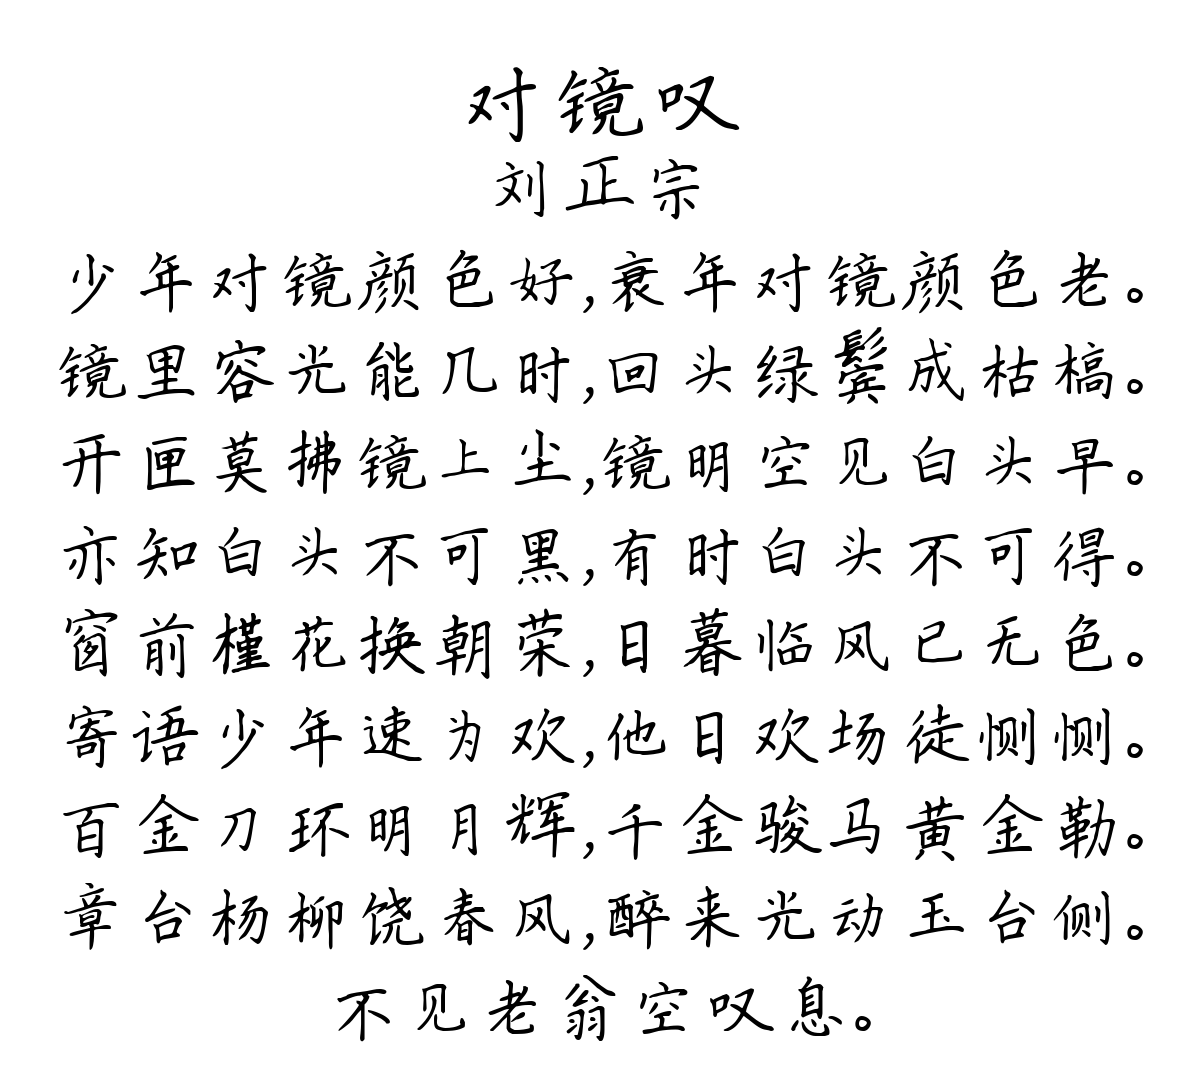 对镜叹
刘正宗
少年对镜颜色好,衰年对镜颜色老。
镜里容光能几时,回头绿鬓成枯槁。
开匣莫拂镜上尘,镜明空见白头早。
亦知白头不可黑,有时白头不可得。
窗前槿花换朝荣,日暮临风已无色。
寄语少年速为欢,他日欢场徒恻恻。
百金刀环明月辉,千金骏马黄金勒。
章台杨柳饶春风,醉来光动玉台侧。
不见老翁空叹息。